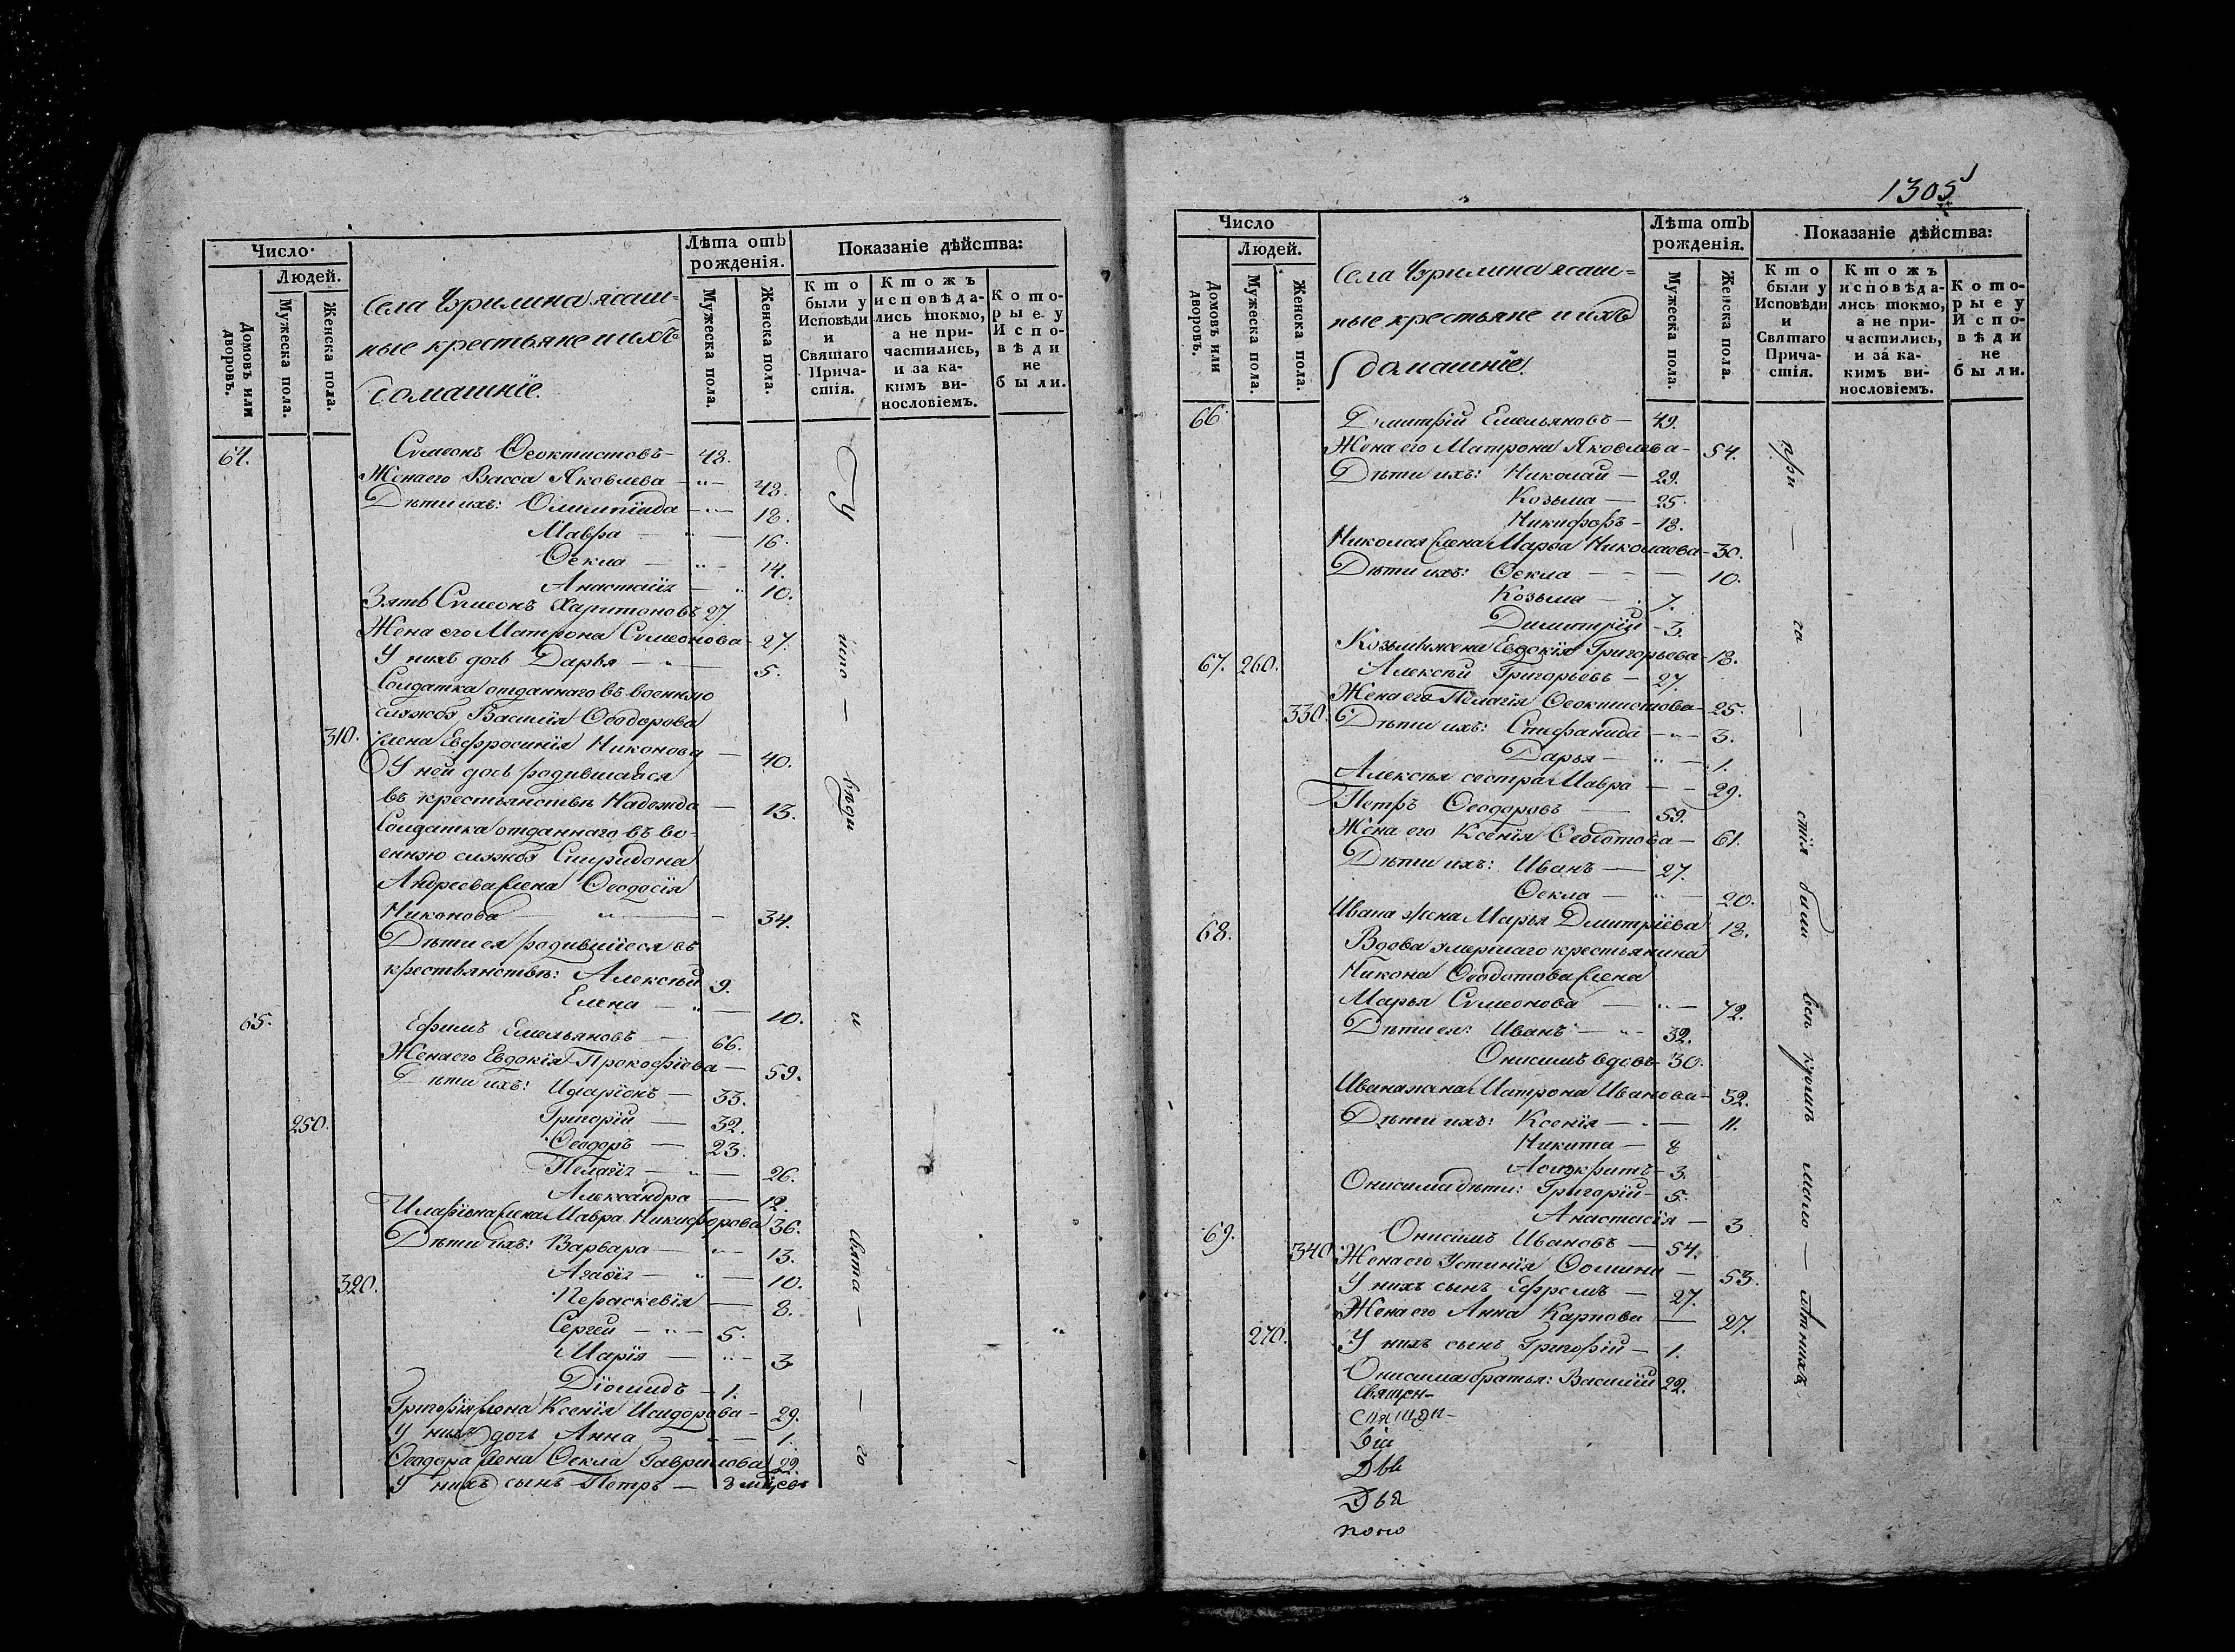 Число
Людей.
Домовъ или дворовъ.
Мужеска пола.
Женска пола.
Села Чурилина ясаш-
ные крестьяне и ихъ
домашніе.
Лѣта отъ рожденія.
Мужеска пола.
Женска пола.
Показаніе дѣйства:
Кто были у Исповѣди и Святаго Прича-стія.
Ктожъ исповѣда-лись токмо, а не при-частились, и за ка-кимъ ви-нословіемъ.
Кото-рые у Испо-вѣди не были.
64. Сѵмеонъ Ѳеоктистовъ - 48.
Жена его Васса Яковлева - 48.
Дѣти ихъ: Олимпіада - 18.
Мавра - 16.
Ѳекла - 14.
Анастасія - 10.
Зять Сѵмеонъ Харитоновъ 27
Жена его Матрона Сѵмеонова - 27.
У нихъ дочь Дарья - 5.
Солдатка отданнаго въ военную
службу Василія Ѳеодорова
310. жена Евфросинія Никонова - 40.
У ней дочь родившаяся
въ крестьянствѣ Надежда - 13.
Солдатка отданнаго въ во-
енную службу Спиридона
Андреева жена Ѳеодосія
Никонова - 34.
Дѣти ея родившіеся въ
крестьянствѣ: Алексѣй 9.
Елена - 10.
65. Ефимъ Емельяновъ - 66.
Жена его Евдокія Прокофіева - 59.
Дѣти ихъ: Иларіонъ - 33.
250. Григорій - 32.
Ѳеодоръ - 23.
Пелагія - 26.
Александра - 12.
Иларіона жена Мавра Никифорова 36.
Дѣти ихъ: Варвара - 13.
Агаѳія - 10.
320. Параскевія - 8.
Сергей - 5.
Марія - 3
Діомидъ - 1.
Григорія жена Ксенія Исидорова - 29.
У нихъ дочь Анна - 1.
Ѳеодора жена Ѳекла Гаврилова 22.
У нихъ сынъ Петръ -
У испо - вѣди и свята - - го
1305
Число
Людей.
Домовъ или дворовъ.
Мужеска пола.
Женска пола.
Села Чурилина ясаш-
ные крестьяне и ихъ
домашніе.
Лѣта отъ рожденія.
Мужеска пола.
Женска пола.
Показаніе дѣйства:
Кто были у Исповѣди и Святаго Прича-стія.
Ктожъ исповѣда-лись токмо, а не при-частились, и за ка-кимъ ви-нословіемъ.
Кото-рые у Испо-вѣди не были.
66. Дмитрій Емельяновъ - 49.
Жена его Матрона Яковлева - 54.
Дѣти ихъ: Николай - 29.
Козьма - 25.
Никифоръ - 18.
Николая жена Марѳа Николаева - 30.
Дѣти ихъ: Ѳекла - 10.
Козьма - 7.
Димитрій - 3.
Козьмы жена Евдокія Григорьева - 18.
67. 260. Алексѣй Григорьевъ - 27.
Жена его Пелагія Ѳеоктистова - 25.
330. Дѣти ихъ: Стефанида - 3.
Дарья - 1.
Алексѣя сестра Мавра - 29.
Петръ Ѳеодоровъ - 59.
Жена его Ксенія Ѳеодотова - 61.
Дѣти ихъ: Иванъ - 27.
Ѳекла - 20.
Ивана жена Марья Дмитріева 18.
68. Вдова умершаго крестьянина
Никона Ѳеодотова жена
Марья Сѵмеонова - 72.
Дѣти ея: Иванъ - 32.
Онисимъ вдовъ - 30.
Ивана жена Матрона Иванова - 32.
Дѣти ихъ: Ксенія - 11.
Никита - 8
Асигкритъ - 3.
Онисима дѣти: Григорій - 5.
Анастасія - 3
69. Онисимъ Ивановъ - 54.
340. Жена его Устинія Ѳомина - 53.
У нихъ сынъ Ефремъ - 27.
Жена его Анна Карпова - 27.
270. У нихъ сынъ Григорій - 1.
Онисима братья: Василій 22.
Священ-
при - ча - стія были всѣ кромѣ мало - лѣтнихъ